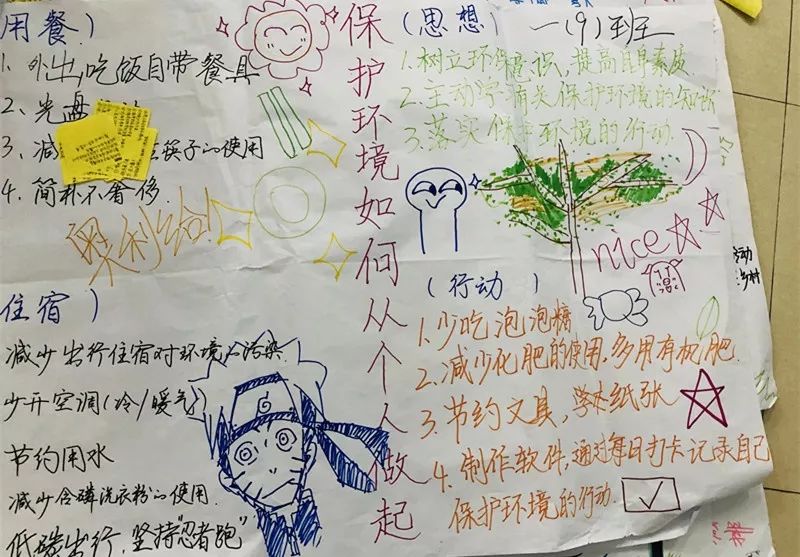 用餐)
1、外出吃饭自带餐具
2、光盘
3、减 筷子的使用
4、简朴不奢侈.
奥利给!
保护环境如何从个人做起
(思想)
一(9)班
1.树立环保意识,提高自身素质
2.主动学 有关保护环境的知识
3.落实保护环境的行动.
nice
住宿)
减少出行住宿对环境的污染
少开空调(冷/暖气)
节约用水
减少含磷洗衣粉的使用.
低碳出行,坚持"忍者跑"
(行动)
1.少吃泡泡糖
2.减少化肥的使用,多用有机肥.
3.节约文具,学术纸张
4.制作软件,通过每日打卡记录自己
保护环境的行动.